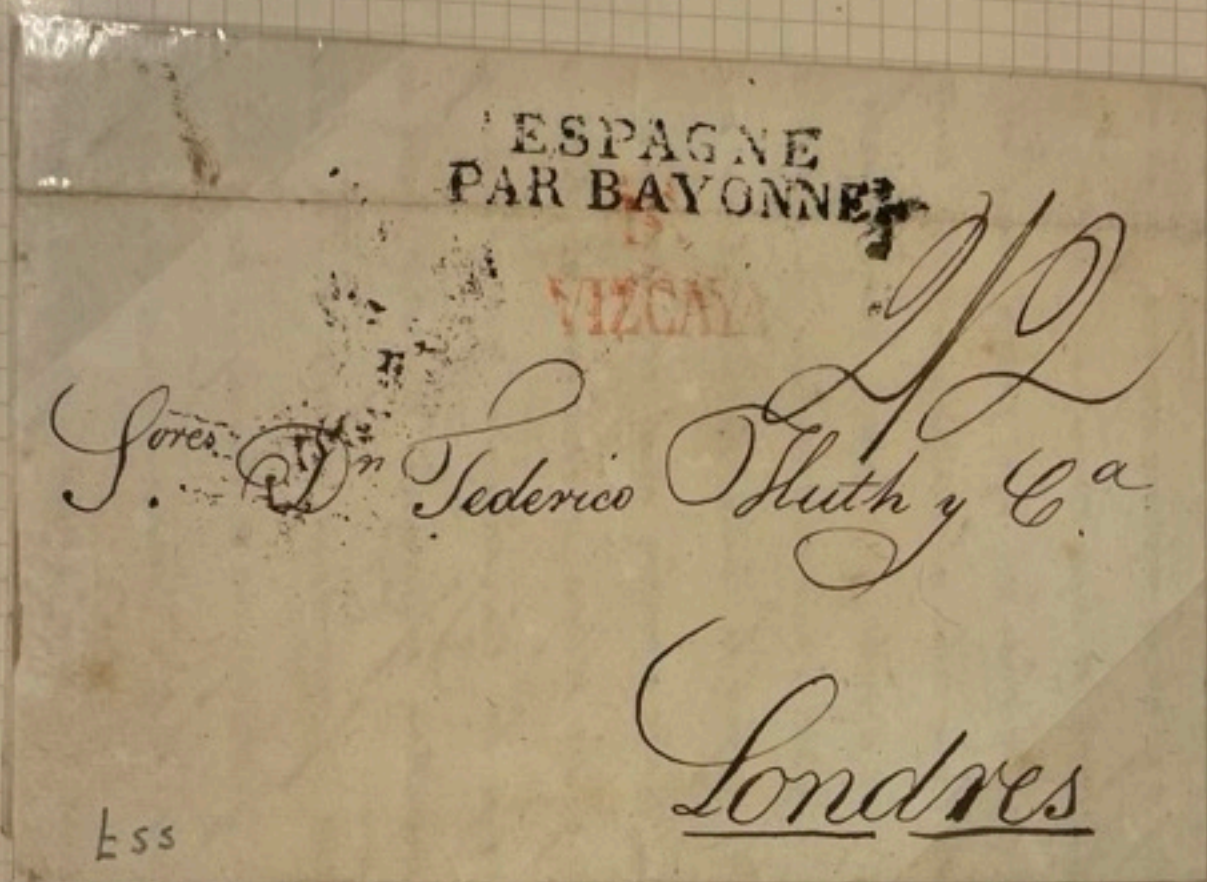 ESPAGNE
PAR BAYONNE
VIZCAYA
2/2
Sores. Dn Federico Huth y Ca.
Londres
tss